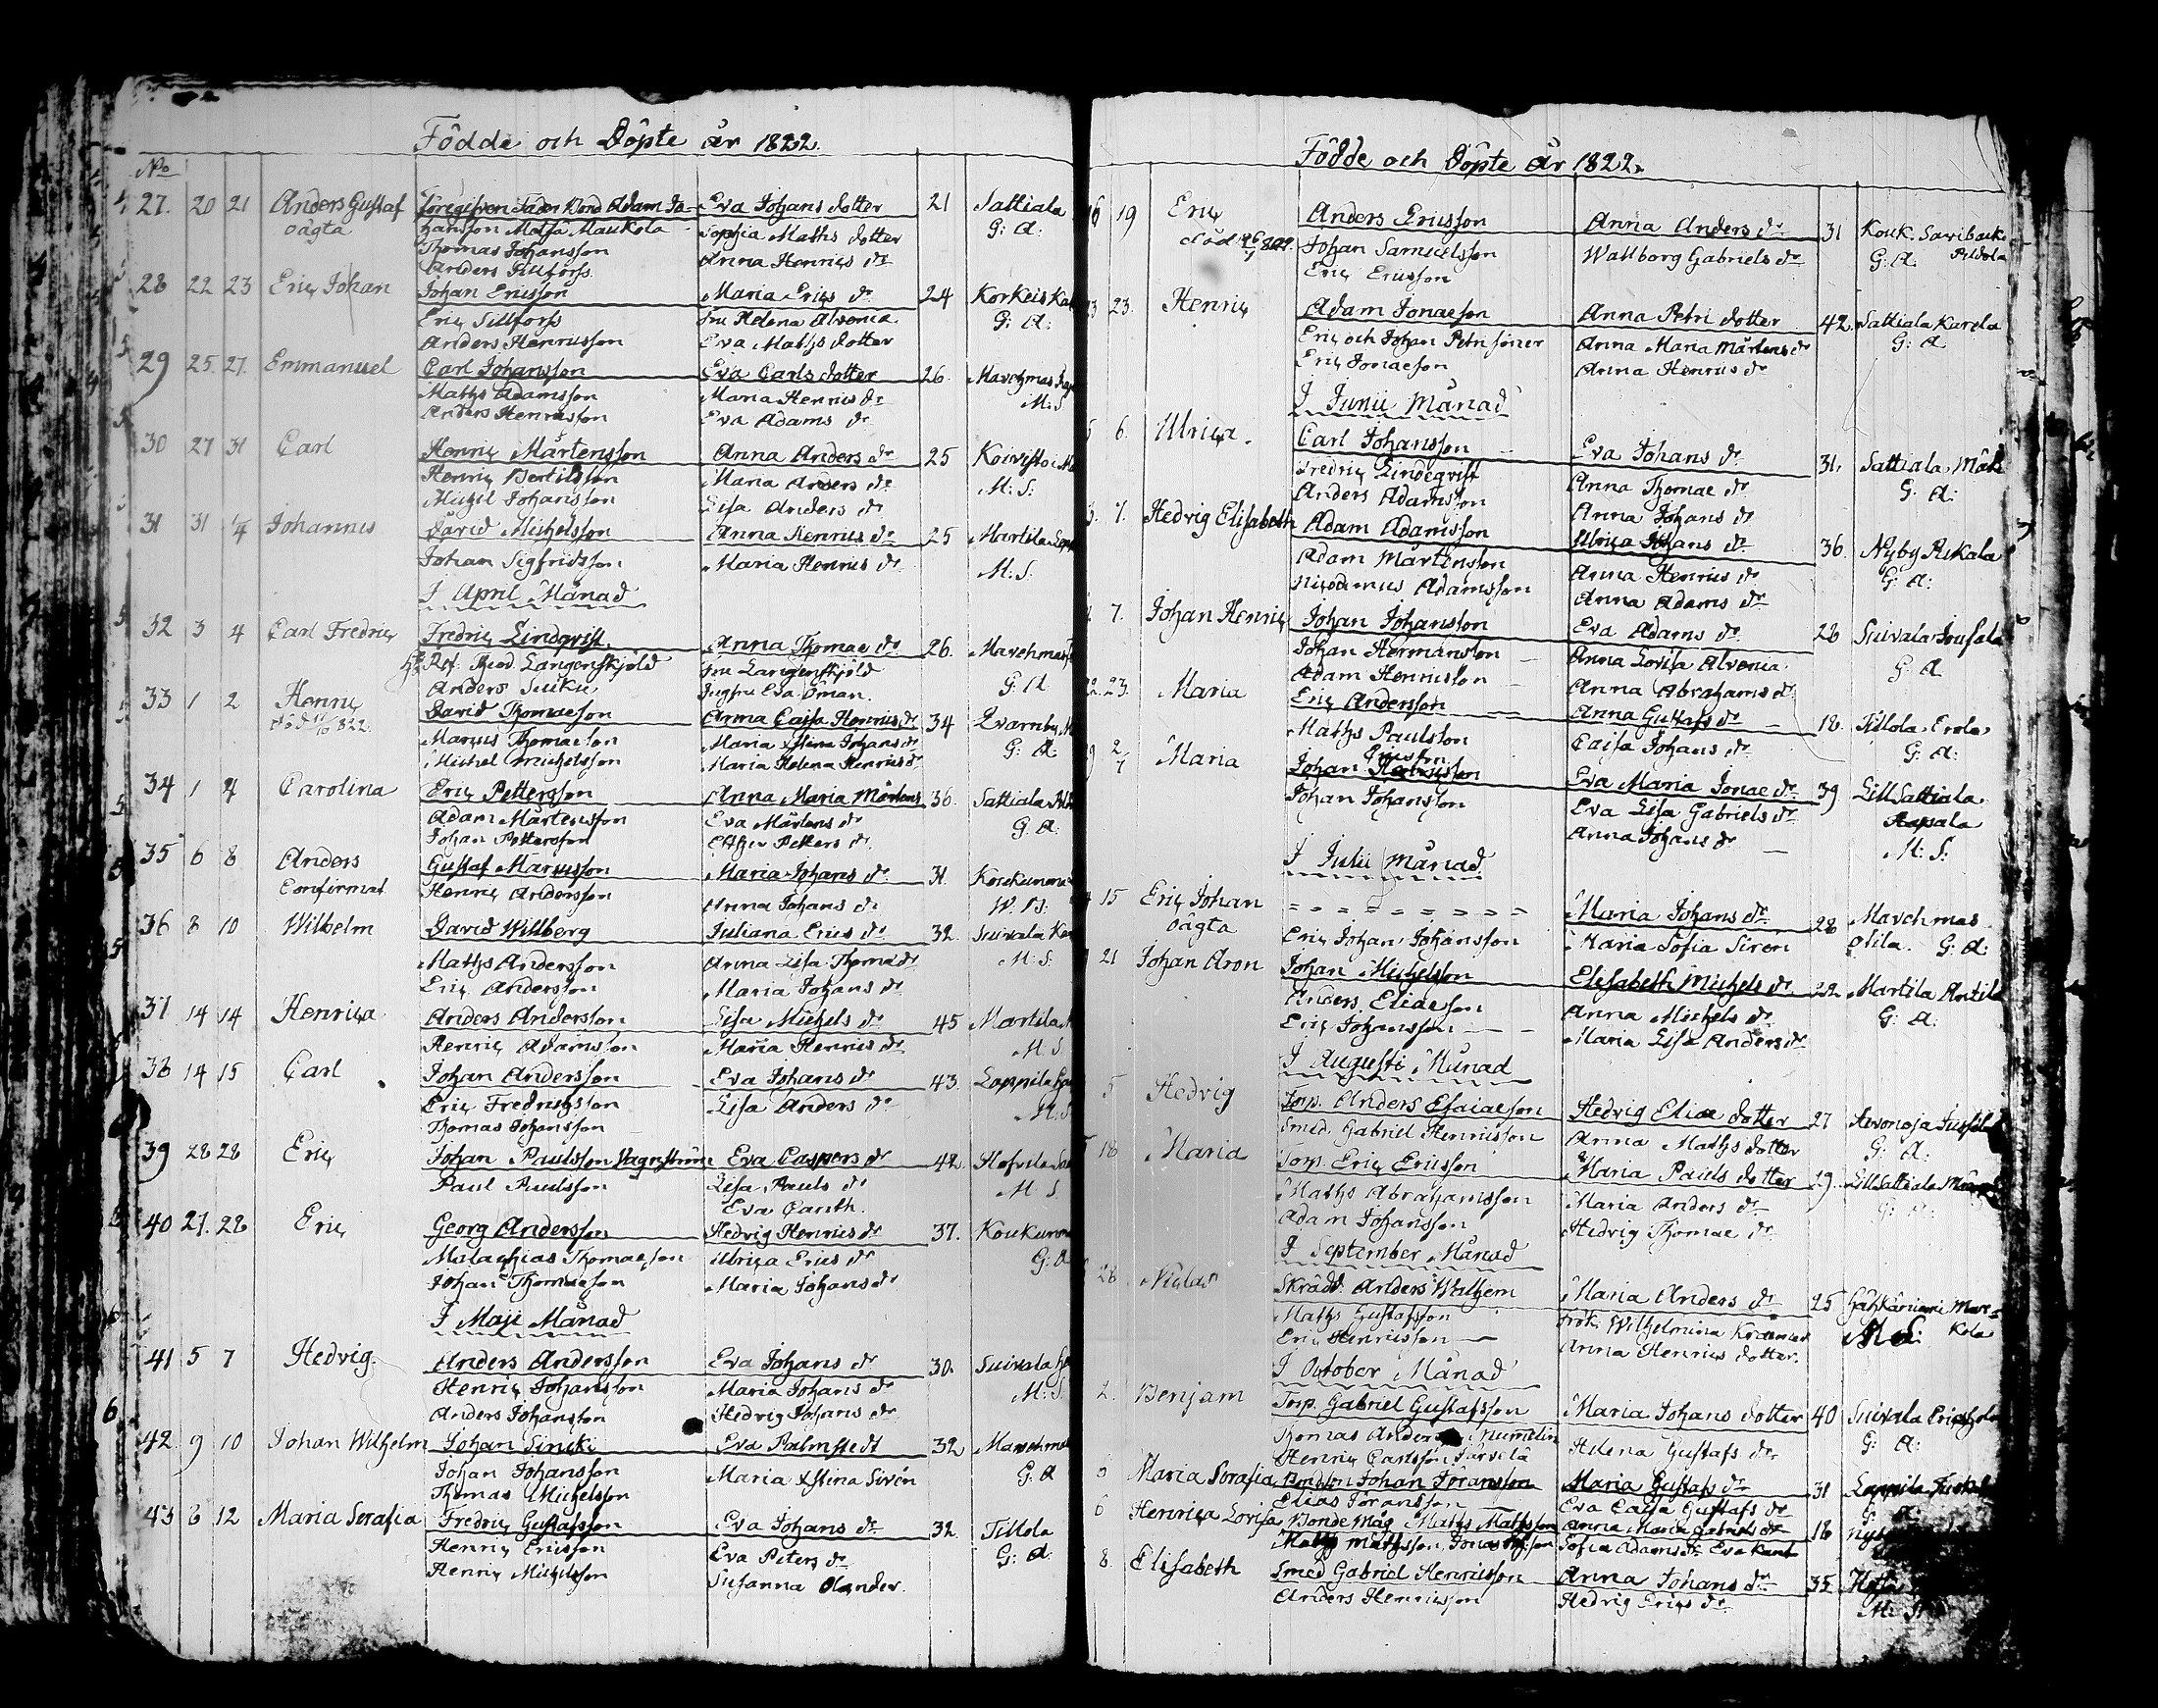 Födde och Döpte år 1822.
No
27. 20 21 Anders Gustaf Föregifven Fader Bond Adam Jo- Eva Johans dotter 21 Sattiala
oägta hansson Matfä Maukola Sophia Maths dotter G: A:
Thomas Johansson Anna Henrics dr
Anders Sillfors
28 22 23 Eric Johan Johan Ericsson Maria Erics dr 24 Korkeis
Eric Sillfors fru Helena Alvenia G: A:
Anders Henricsson Eva Maths dotter
29 25. 27. Emmanuel Carl Johansson Eva Carls dotter 26. Marchmas
Maths Adamsson Maria Henrics dr M: S
Anders Henricsson Eva Adams dr
30 27 31 Carl Henric Mårtensson Anna Anders dr 25 Koivisto
Henric Bertilsson Maria Anders dr M: S:
Michel Johansson Lisa Anders dr
31 31 1/4 Johannes David Michelsson Anna Henrics dr 25 Martila
Johan Sigfridsson Maria Henrics dr M: S:
I April Månad
32 3 4 Carl Fredric Fredric Lindqvist Anna Thomae dr 26. Marchmas
Theod. Langenskjöld fru Langenskjöld G: A
Anders Suiku Jngfru Eva Öman.
33 1 2 Henric David Thomaeson Anna Caisa Henrics dr 34 Qvarnby
död 822. Marcus Thomaeson Maria Stina Johans dr G: A:
Michel Michelsson Maria Helena Henrics dr
34 1 4 Carolina Eric Pettersson Anna Maria Mårtens 36. Sattiala
Adam Mårtensson Eva Mårtens dr G: A:
Johan Pettersson Petters dr
35 6 8 Anders Gustaf Marcusson Maria Johans dr 31. Koukunoma
Confirmat Henric Andersson Anna Johans dr
36 8 10 Wilhelm David Willberg Juliana Erics dr 32. Suivala
Maths Andersson Anna Lisa Thomae dr M: S:
Eric Andersson Maria Johans dr
37 14 14 Henrica Anders Andersson Lisa Michels dr 45 Martila
Henric Adamsson Maria Henrics dr M: S
38 14 15 Carl Johan Andersson Eva Johans dr 43. Loppila
Eric Fredricsson Lisa Anders dr M: S
Thomas Johansson
39 28 28 Eric Johan Paulsson Vagnström Eva Caspers dr 42. Hofvila
Paul Paulsson Lisa Pauls dr M: S
Eva Canth.
40 27. 28 Eric Georg Andersson Hedvig Henrics dr 37. Koukuno
Malachias Thomaeson Ulrica Erics dr G: A
Johan Thomaeson Maria Johans dr
I Maji Månad
41 5 7 Hedvig Anders Andersson Eva Johans dr 30. Suivala
Henric Johansson Maria Johans dr M: S
Anders Johansson Hedvig Johans dr
42 9 10 Johan Wilhelm Johan Sinski Eva Palmstedt 32 Marchma
Johan Johansson Maria Stina Sirén G: A
Thomas Michelsson
43 6 12 Maria Serafia Fredric Gustafsson Eva Johans dr 32. Tillola
Henric Ericsson Eva Peters dr G: A:
Henric Michelsson Susanna Olander.
Födde och Döpte År 1822.
16 19 Eric Anders Ericsson Anna Anders dr 31 Kouk. Saribacke
död Johan Samuelsson Wallborg Gabriels dr G: A. Pildola
Eric Ericsson
23 23. Henric Adam Jonaeson Anna Petri dotter 42. Sattiala Karela
Eric och Johan Petri söner Anna Maria Mårtens dr G: A
Eric Jonaeson Anna Henrics dr
I Junii Månad
6. Ulrica. Carl Johansson Eva Johans dr 31. Sattiala
Fredric Lindeqvist Anna Thomae dr G: A:
Anders Adamsson Anna Johans dr
7. Hedvig Elisabeth Adam Adamsson Ulrica Johans dr 36. Nyby Pukala
Adam Mårtensson Anna Henrics dr G: A:
Nicodemus Adamsson Anna Adams dr
7. Johan Henric Johan Johansson Eva Adams dr 28 Suivala
Johan Hermansson Anna Lovisa Alvenia G: A
Adam Henricsson Anna Abrahams dr
22. 23. Maria Eric Andersson Anna Gustafs dr 18. Tillola Erola
Maths Paulsson Caisa Johans dr G: A:
2/7 Maria Johan Ericsson Eva Maria Jonae dr 39 Lill Sattiala
Johan Johansson Eva Lisa Gabriels dr Aapala
Anna Johans dr M: S:
I Julii Månad
15 Eric Johan Maria Johans dr 28 Marchmas
oägta Eric Johan Johansson Maria Sofia Siren Olila. G: A:
21 Johan Aron Johan Michelsson Elisabeth Michels dr 22. Martila Antila
Anders Eliaeson Anna Michels dr G: A:
Eric Johansson Maria Lisa Anders dr
I Augusti Månad
5 Hedvig Torp. Anders Esaiaeson Hedvig Eliae dotter 27 Jussila
Smed. Gabriel Henricsson Anna Maths dotter G: A:
18 Maria Torp. Eric Ericsson Maria Pauls dotter 29. Lill Sattiala
Maths Abrahamsson Maria Anders dr G: A:
Adam Johansson Hedvig Thomae dr
I September Månad
28 Niclas Skrädd. Anders Maria Anders dr 25
Maths Gustafsson Frök. Wilhelmina Kraemer M S:
Eric Henricsson Anna Henrics dotter.
I October Månad
2. Benjam Torp. Gabriel Gustafsson Maria Johans dotter 40 Suivala
Thomas Anders Numelin Helena Gustafs dr G: A:
Henric Carlsson Järvelä
6 Maria Serafia Bondeson Johan Göransson Maria Gustafs dr 31 Loppila
Elias Göransson Eva Caisa Gustafs dr
6 Henrica Lovisa Bonde Måg Maths Mathsson Anna Maria Gabriels dr 18
Maths Mathsson Sofia Adams dr Eva Kant
8 Elisabeth Smed Gabriel Henricsson Anna Johans dr 35
Anders Henricsson Hedvig Erics dr M: